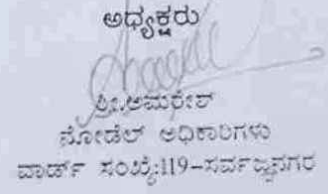 ಅಧ್ಯಕ್ಷರು
ಶ್ರೀ.ಅಮರೇಶ್
ನೋಡೆಲ್ ಅಧಿಕಾರಿಗಳು
ವಾರ್ಡ್ ಸಂಖ್ಯೆ:119-ಸರ್ವಜ್ಞನಗರ